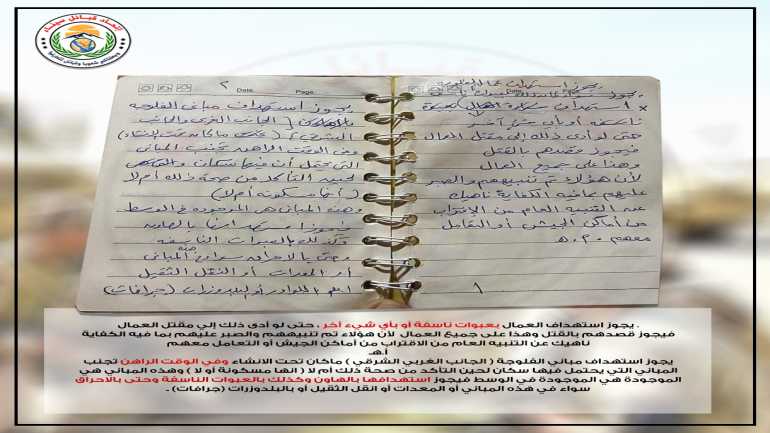 اتحاد قبائل سيناء
٢
Date.
Page.
يجوز استهداف مباني الفلوجه
بالهاون ( الجانب الغربي والجانب
الشرقي )
وفي الوقت الراهن تجنب المباني
التي يحتمل أن فيها سكان
لحين التأكد من صحة ذلك أم لا
( أنها مسكونة أم لا )
وهذه المباني هي الموجوده في الوسط
فيجوز استهدافها بالهاون
وكذلك بالعبوات الناسفه
وحتى بالاحراق سواء في هذه المباني
أو المعدات أو النقل الثقيل
أو البلدوزرات ( جرافات )
Date.
Page.
استهداف
ناسفه أو بأي شيء آخر
حتى لو أدى ذلك إلى مقتل العمال
فيجوز قصدهم بالقتل
وهذا على جميع العمال
لأن هؤلاء تم تنبيههم والصبر
عليهم بما فيه الكفاية ناهيك
عن التنبيه العام من الاقتراب
من أماكن الجيش أو التعامل
معهم . أ . هـ
١
. يجوز استهداف العمال بعبوات ناسفة أو بأي شيء آخر ، حتى لو أدى ذلك إلي مقتل العمال
فيجوز قصدهم بالقتل وهذا على جميع العمال لأن هؤلاء تم تنبيههم والصبر عليهم بما فيه الكفاية
ناهيك عن التنبيه العام من الاقتراب من أماكن الجيش أو التعامل معهم
أ.هـ
يجوز استهداف مباني الفلوجة ( الجانب الغربي الشرقي ) ماكان تحت الانشاء وفي الوقت الراهن تجنب
المباني التي يحتمل فيها سكان لحين التأكد من صحة ذلك أم لا ( انها مسكونة أو لا ) وهذه المباني هي
الموجودة هي الموجودة في الوسط فيجوز استهدافها بالهاون وكذلك بالعبوات الناسفة وحتى بالاحراق
سواء في هذه المباني أو المعدات أو انقل الثقيل أو بالبلدوزرات (جرافات) .